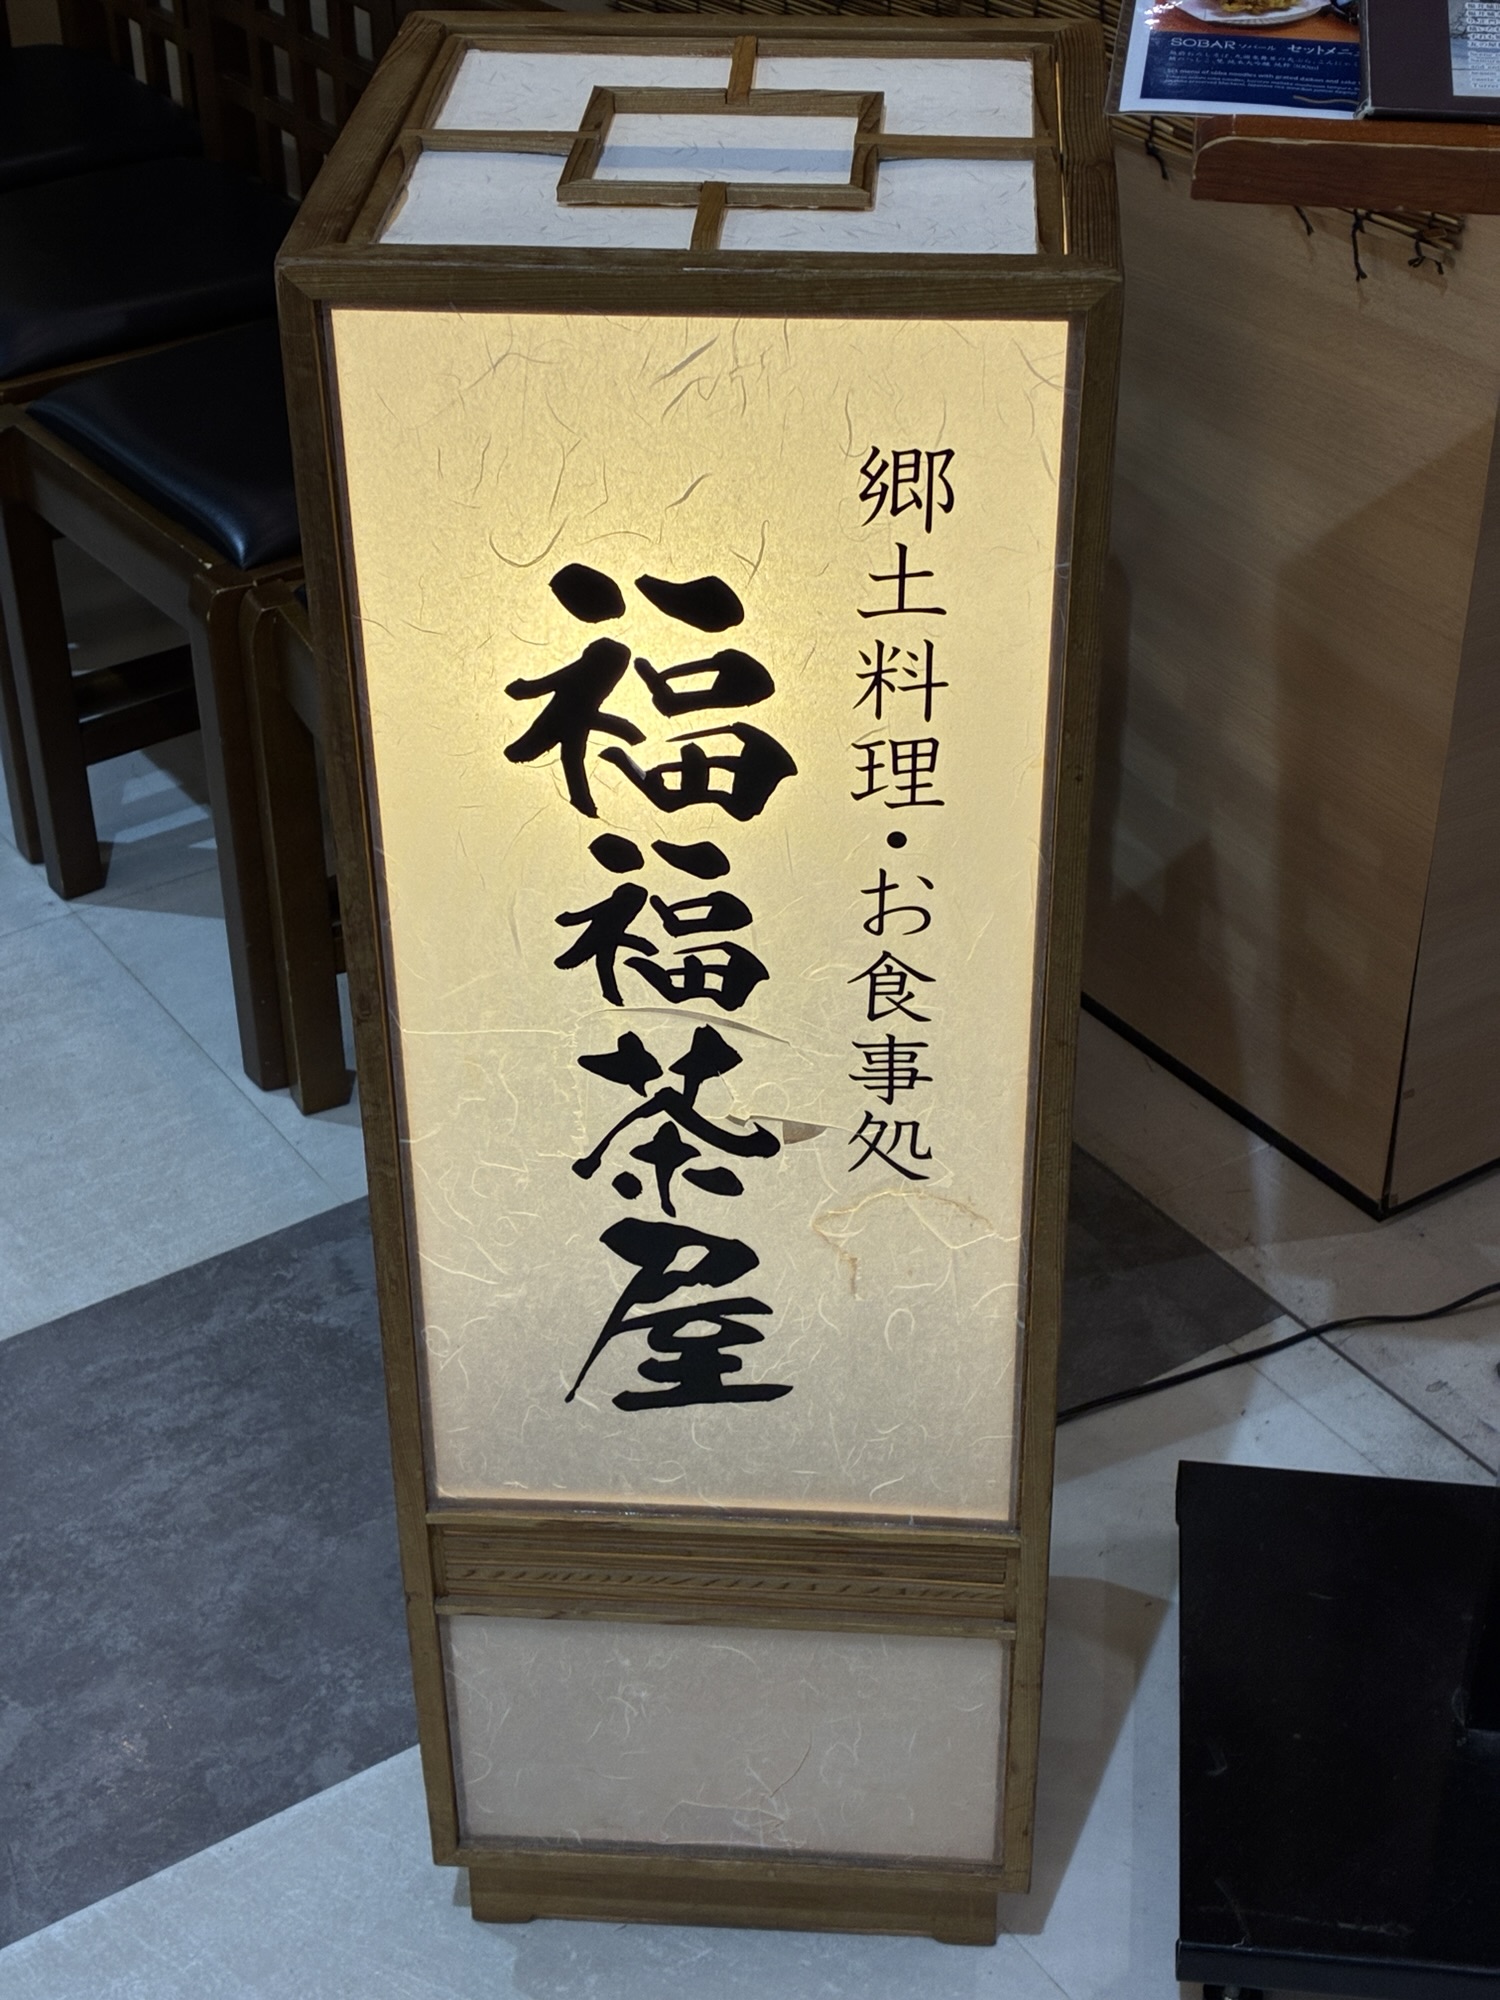 郷土料理・お食事処
福福茶屋
SOBAR ソバール セットメニ